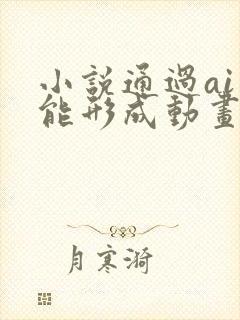 小說通過ai
能形成動畫
月寒漪